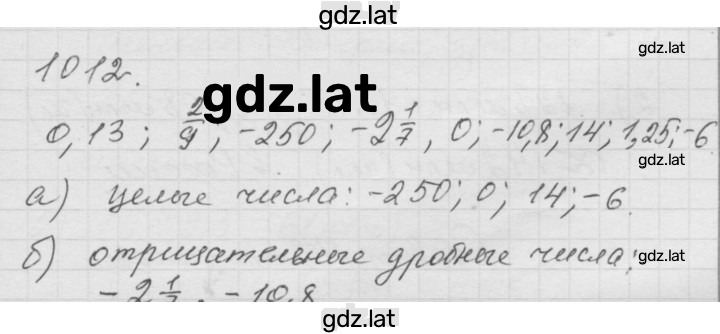 gdz.lat
1012.
gdz.lat
gdz.lat
0,13; 2/9; -250; -2 1/7, 0; -10,8; 14; 1,25; -6
а) целые числа: -250; 0; 14; -6.
б) отрицательные дробные числа:
gdz.lat
-2 1/7, -10,8
gdz.lat